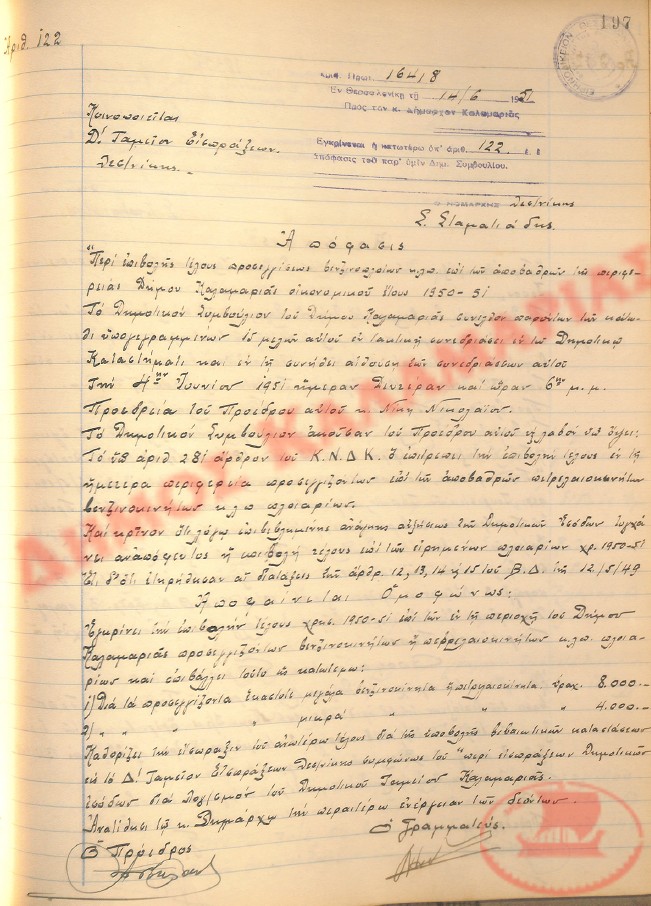 197
Αριθ. 122
αριθ. Πρωτ. 16418
Εν Θεσσαλονίκη τη 14/6 1951
Προς τον κ. Δήμαρχον Καλαμαριάς
Κοινοποιείται
Δ! Ταμείον Εισπράξεων
Θεσ)νίκης
Εγκρίνεται η κατωτέρω υπ' αριθ. 122 ε.ε
απόφασις του παρ' υμίν Δημ. Συμβουλίου.
Ο ΝΟΜΑΡΧΗΣ Θεσ)νίκης
Σ. Σταματιάδης.
Απόφασις
"Περί επιβολής τέλους προσεγγίσεως βενζινοπλοίων κλπ. επί των αποβαθρών της περιφε-
ρείας Δήμου Καλαμαριάς οικονομικού έτους 1950-51
Το Δημοτικόν Συμβούλιον του Δήμου Καλαμαριάς συνελθόν παρόντων των κάτω-
θι υπογεγραμμένων μελών αυτού εν τακτική συνεδριάσει εν τω Δημοτικώ
Καταστήματι και εν τη συνήθει αιθούση των συνεδριάσεων αυτού
Την 4ην Ιουνίου 1951 ημέραν Δευτέραν και ώραν 6ην μ.μ.
Προεδρεία του Προέδρου αυτού κ. Νικολαΐου.
Το Δημοτικόν Συμβούλιον ακούσαν του Προέδρου αυτού λαβόν υπ' όψει:
Το υπ' αριθ 281 άρθρον του Κ.Ν.Δ.Κ. ο επιτρέπει την επιβολήν τέλους εν τη
ημετέρα περιφερεία προσεγγιζόντων επί των αποβαθρών πετρελαιοκινήτων
βενζινοκινήτων κ.λ.π πλοιαρίων.
Και κρίνον ότι λόγω επιβεβλημένης ανάγκης αυξήσεως των Δημοτικών Εσόδων τυγχά
νει αναπόφευκτος η επιβολή τέλους επί των ειρημένων πλοιαρίων χρ. 1950-51
Έτι δ' ότι ετηρήθησαν αι διατάξεις των άρθρ. 12, 13, 14 & 15 του Β.Δ. της 12/5/49
Αποφαίνεται Ομοφώνως:
Εγκρίνει την επιβολήν τέλους χρήσ. 1950-51 επί των εν τη περιοχή του Δήμου
Καλαμαριάς προσεγγιζόντων βενζινοκινήτων ή πετρελαιοκινήτων κ.λπ. πλοια-
ρίων και επιβάλλει τούτο ως κατωτέρω:
1) Διά τα προσεγγίζοντα εκάστοτε μεγάλα βενζινοκίνητα ή πετρελαιοκίνητα δραχ. 8.000.-
2) " " " μικρά " " " 4.000.-
Καθορίζει την είσπραξιν του ανωτέρω τέλους διά της υποβολής βεβαιωτικών καταστάσεων
εις το Δ! Ταμείον Εισπράξεων Θεσ)νίκης συμφώνως του "περί εισπράξεων Δημοτικών
εσόδων διά λογ)σμόν του Δημοτικού Ταμείου Καλαμαριάς.
Αναθέτει τω κ. Δημάρχω την περαιτέρω ενέργειαν των δεόντων.
Ο Πρόεδρος
Ο Γραμματεύς.
ΔΗΜΟΣ ΚΑΛΑΜΑΡΙΑΣ